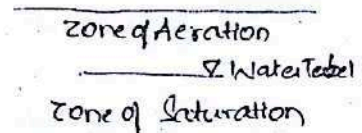 zone of Aeration
∇ Water Tabel
zone of Saturation